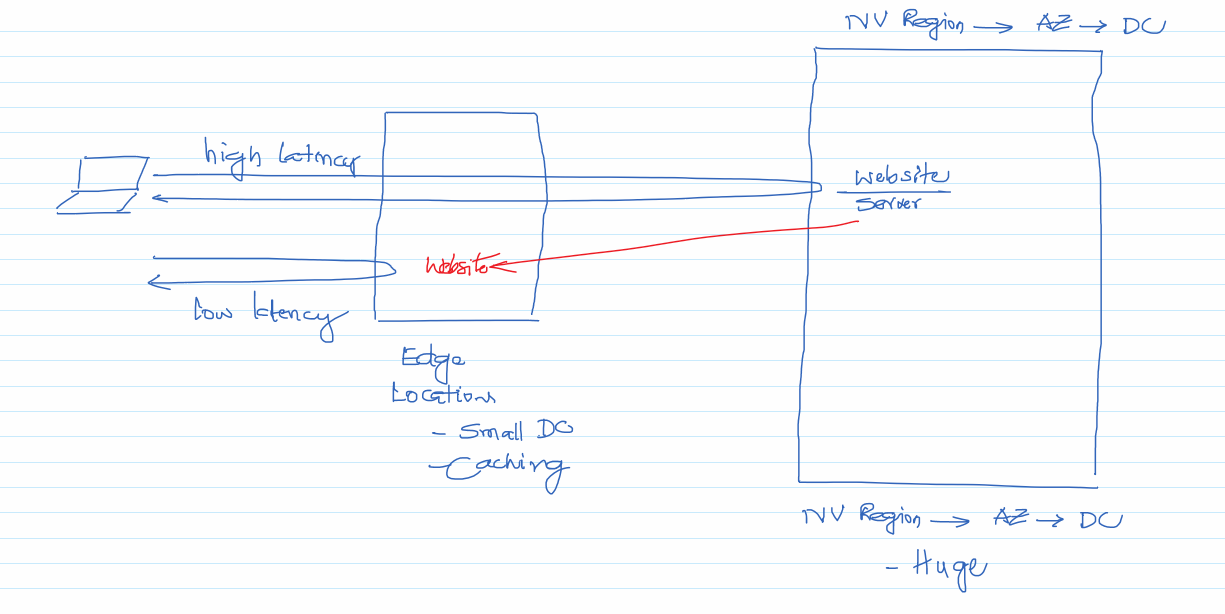 NV Region → AZ → DC
high latency
Website
Server
Website
low latency
Edge
Locations
- Small DC
- Caching
NV Region → AZ → DC
- Huge